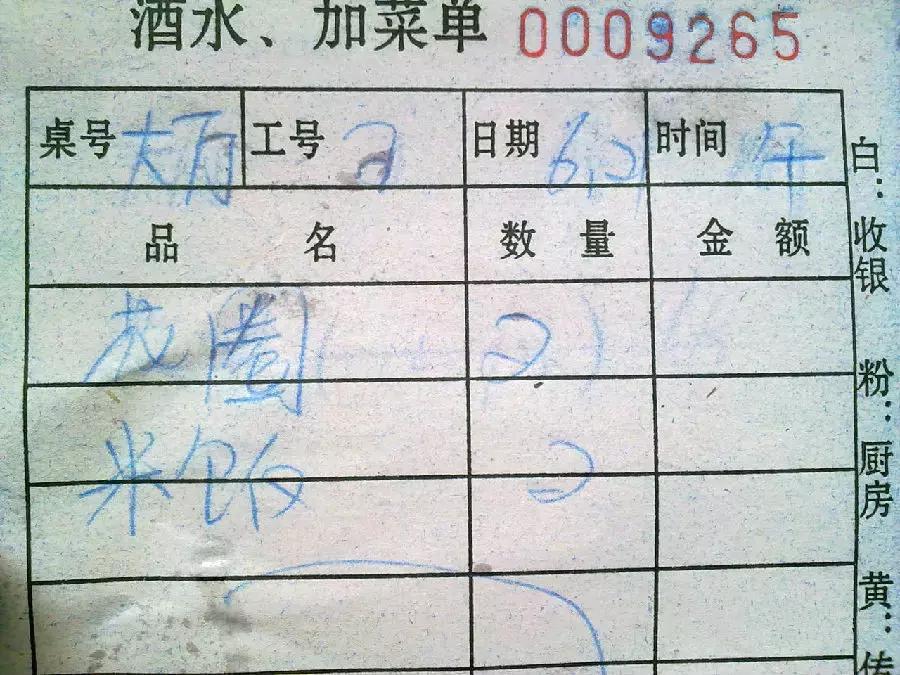 酒水、加菜单 0009265
桌号 大万 工号 2 日期 6.2 时间 午
品名 数量 金额
花圈 2
米饭 2
白：收银 粉：厨房 黄：传